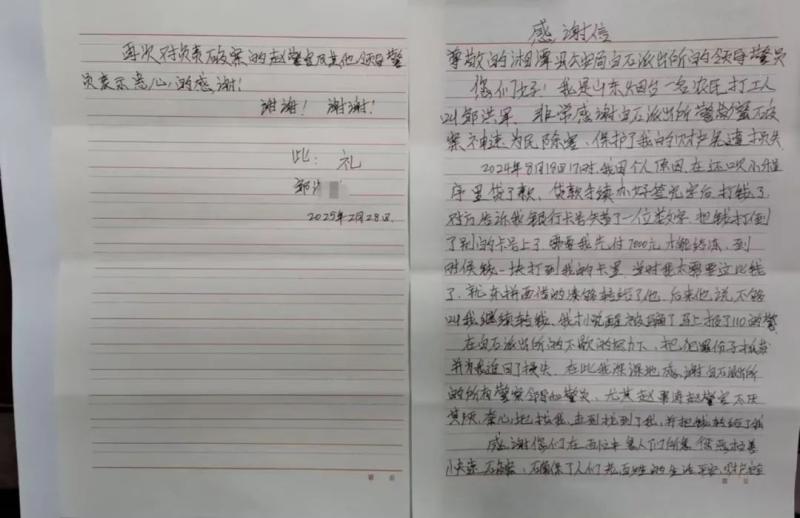 感谢信
尊敬的湘潭县公安局白石派出所的领导警员
您们好！我是山东烟台一名农民打工人
叫邹洪军、非常感谢白石派出所警察破
案神速为民除害、保护了我的财产免遭损失
2024年8月19日17时,我因个人原因,在还呗小程
序里贷了款、贷款手续办好签完字后打钱了
对方告诉我银行卡号失营了一位数字,把钱打到
了别的卡号上了需要我先付7000元才能解冻,到
时候钱一块打到我的卡里,当时我太需要这比钱
了,就东拼西借的凑够转给了他,后来他说不够
叫我继续转钱、我才觉醒被骗了马上报了110的警
在白石派出所的不懈的努力下、把犯罪份子抓获
并为我追回了损失、在此我深深地感谢白石派出所
的所有警察领导和警员、尤其赵警官不厌
其烦,找到了我,并把钱转给了我
感谢您们在
人们老百姓的生活平安,财产
再次对负责破案的赵警官及其他领导警
员表示衷心的感谢！
谢谢！谢谢！
此：礼
邹
2025年2月28日